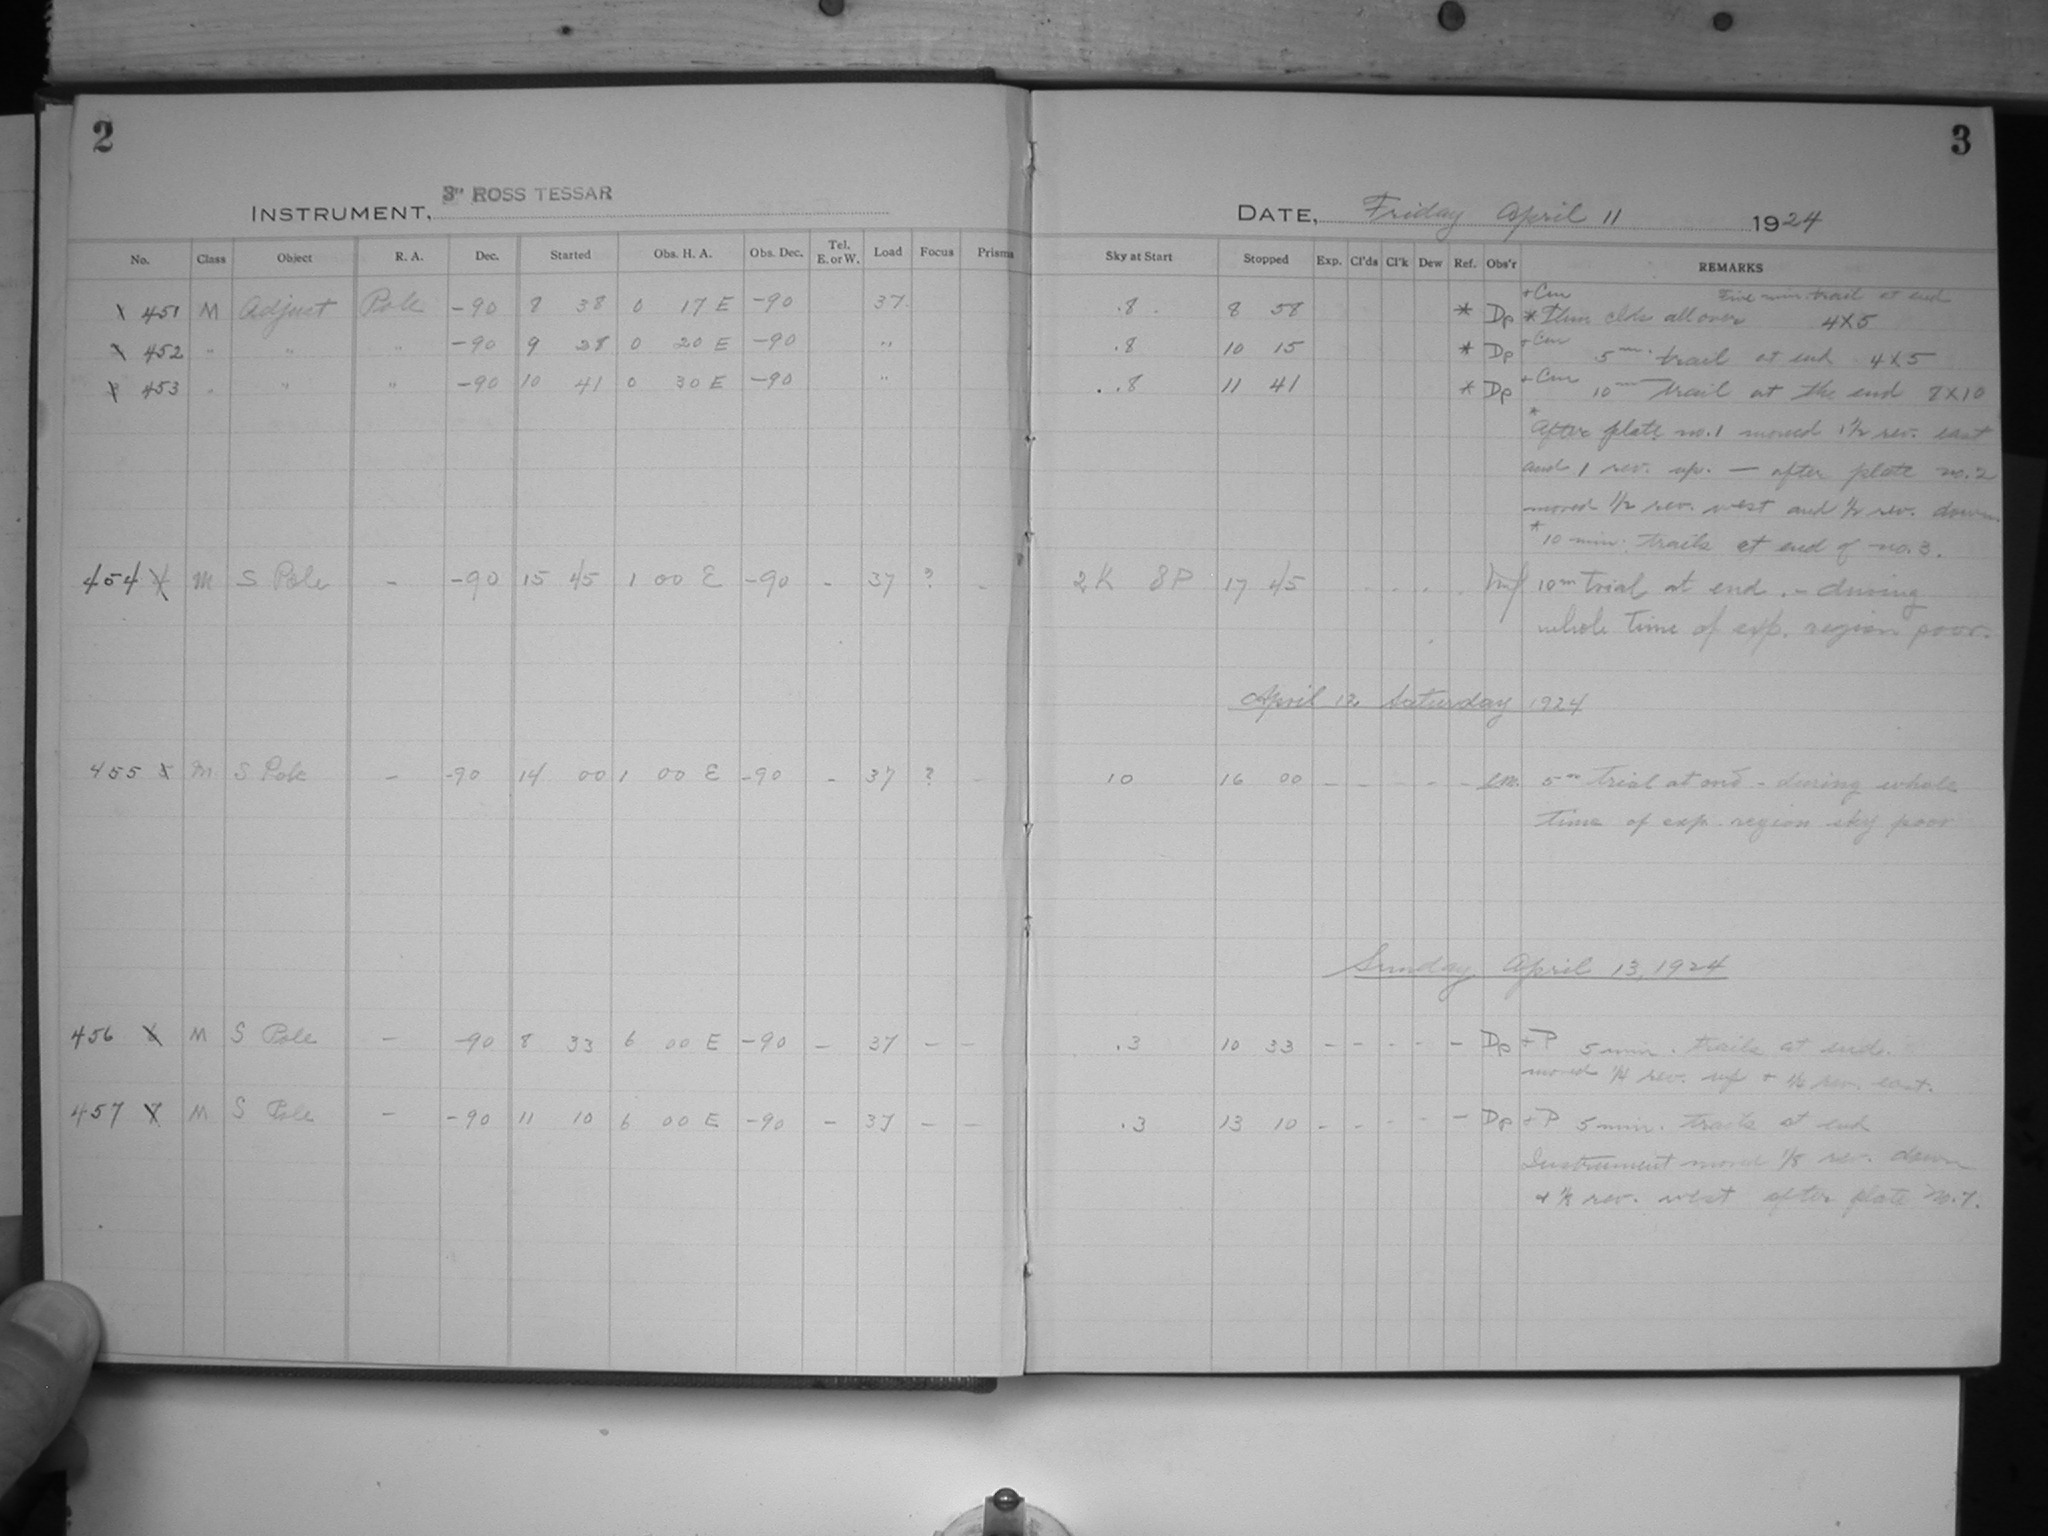 2
3
INSTRUMENT, 3" ROSS TESSAR
DATE, Friday April 11 1924
No. Class Object R. A. Dec. Started Obs. H. A. Obs. Dec. Tel. E. or W. Load Focus Prisms Sky at Start Stopped Exp. Cl'ds Cl'k Dew Ref. Obs'r REMARKS
451 M Adjust Pole -90 8 38 0 17 E -90 37 .8 8 58 * Dp + Cm Five min. trail at end
* Thin clds all over 4X5
452 " " " -90 9 28 0 20 E -90 " .8 10 15 * Dp + Cm 5m. trail at end 4X5
453 " " " -90 10 41 0 30 E -90 " .8 11 41 * Dp + Cm 10m trail at the end 8X10
* After plate no. 1 moved 1½ rev. east
and 1 rev. up. — after plate no. 2
moved ½ rev. west and ½ rev. down
* 10 min. trails at end of no. 3.
454 M S Pole - -90 15 45 1 00 E -90 - 37 ? - 2K 8P 17 45 10m trial at end. - during
whole time of exp. region poor.
April 12 Saturday 1924
455 M S Pole - -90 14 00 1 00 E -90 - 37 ? - 10 16 00 - - - - - 5m trial at end - during whole
time of exp region sky poor
Sunday April 13, 1924
456 6 M S Pole - -90 8 33 6 00 E -90 - 37 - - .3 10 33 - - - - - Dp + P 5 min. trails at end.
moved ¼ rev. up + ½ rev. east.
457 7 M S Pole - -90 11 10 6 00 E -90 - 37 - - .3 13 10 - - - - - Dp + P 5 min. trails at end
Instrument moved 1/8 rev. down
+ rev. west after plate no. 7.